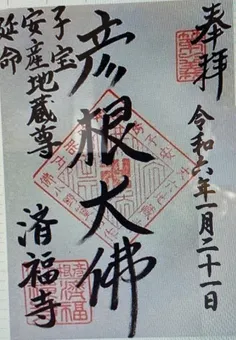 奉拝
令和六年一月二十一日
彦根大佛
子宝
安産地蔵尊
延命
済福寺